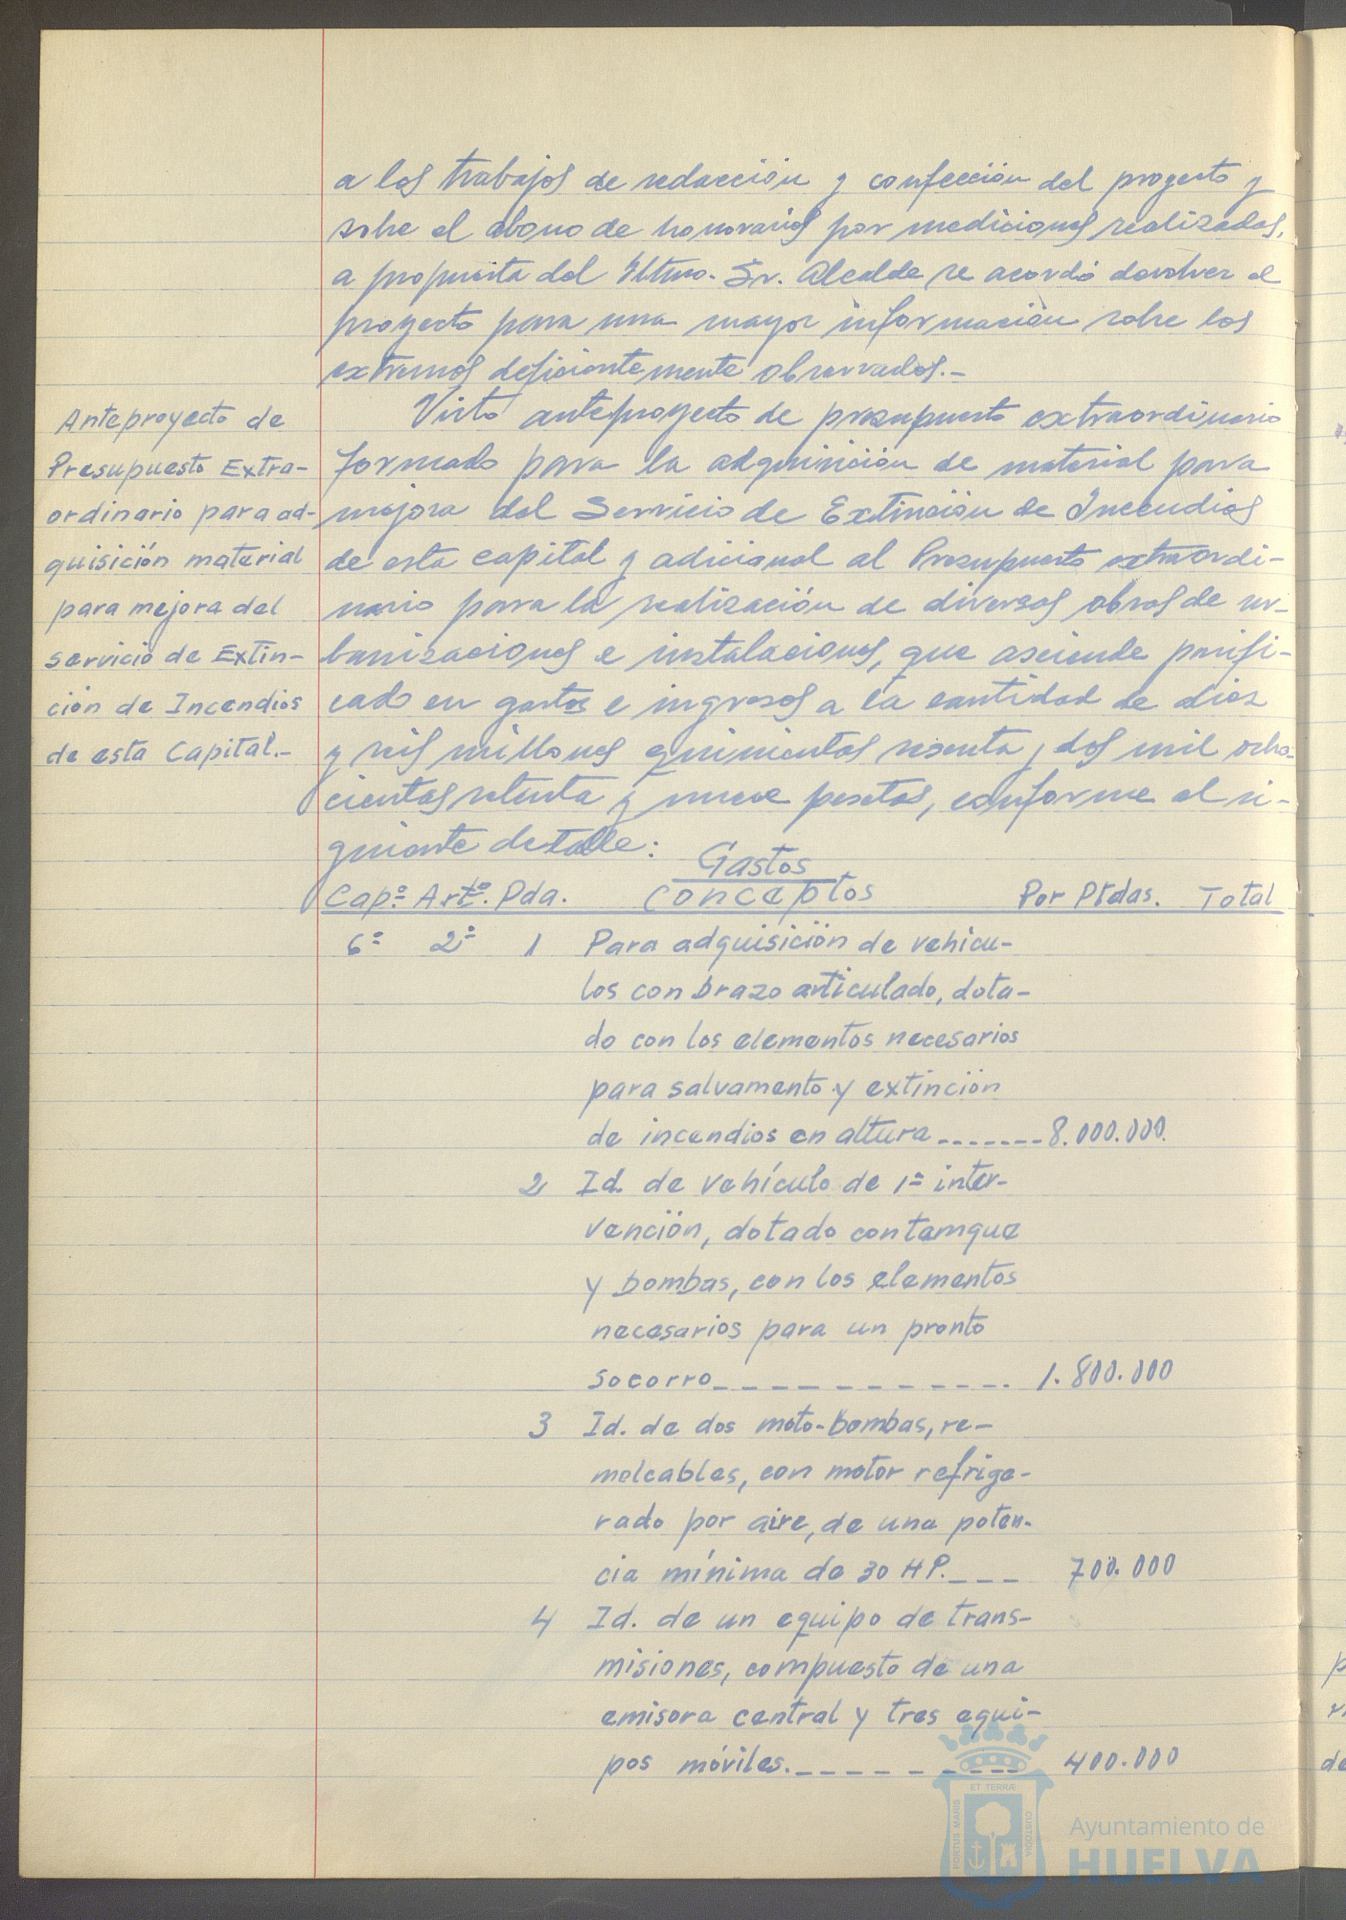 a los trabajos de redacción y confección del proyecto y
sobre el abono de honorarios por mediciones realizadas,
a propuesta del Iltmo. Sr. Alcalde se acordó devolver el
proyecto para una mayor información sobre los
extremos deficientemente observados.-
Anteproyecto de
Presupuesto Extra-
ordinario para ad-
quisición material
para mejora del
servicio de Extin-
ción de Incendios
de esta Capital.-
Visto anteproyecto de presupuesto extraordinario
formado para la adquisición de material para
mejora del Servicio de Extinción de Incendios
de esta capital y adicional al Presupuesto extraordi-
nario para la realización de diversas obras de ur-
banizaciones e instalaciones, que asciende
cado en gastos e ingresos a la cantidad de diez
y seis millones quinientas sesenta y dos mil ocho-
cientas setenta y nueve pesetas, conforme el si-
guiente detalle:
Gastos
Cap.º Artº. Pda. Conceptos Por Ptdas. Total
6º 2º 1 Para adquisición de vehícu-
los con brazo articulado, dota-
do con los elementos necesarios
para salvamento y extinción
de incendios en altura ------- 8.000.000.
2 Id. de vehículo de 1ª inter-
vención, dotado con tamque
y bombas, con los elementos
necesarios para un pronto
socorro ------------ 1.800.000
3 Id. de dos moto-bombas, re-
molcables, con motor refrige-
rado por aire, de una poten-
cia mínima de 30 HP. --- 700.000
4 Id. de un equipo de trans-
misiones, compuesto de una
emisora central y tres equi-
pos móviles. --------- 400.000
ET TERRÆ
PORTUS MARIS
CUSTODIA
Ayuntamiento de
HUELVA